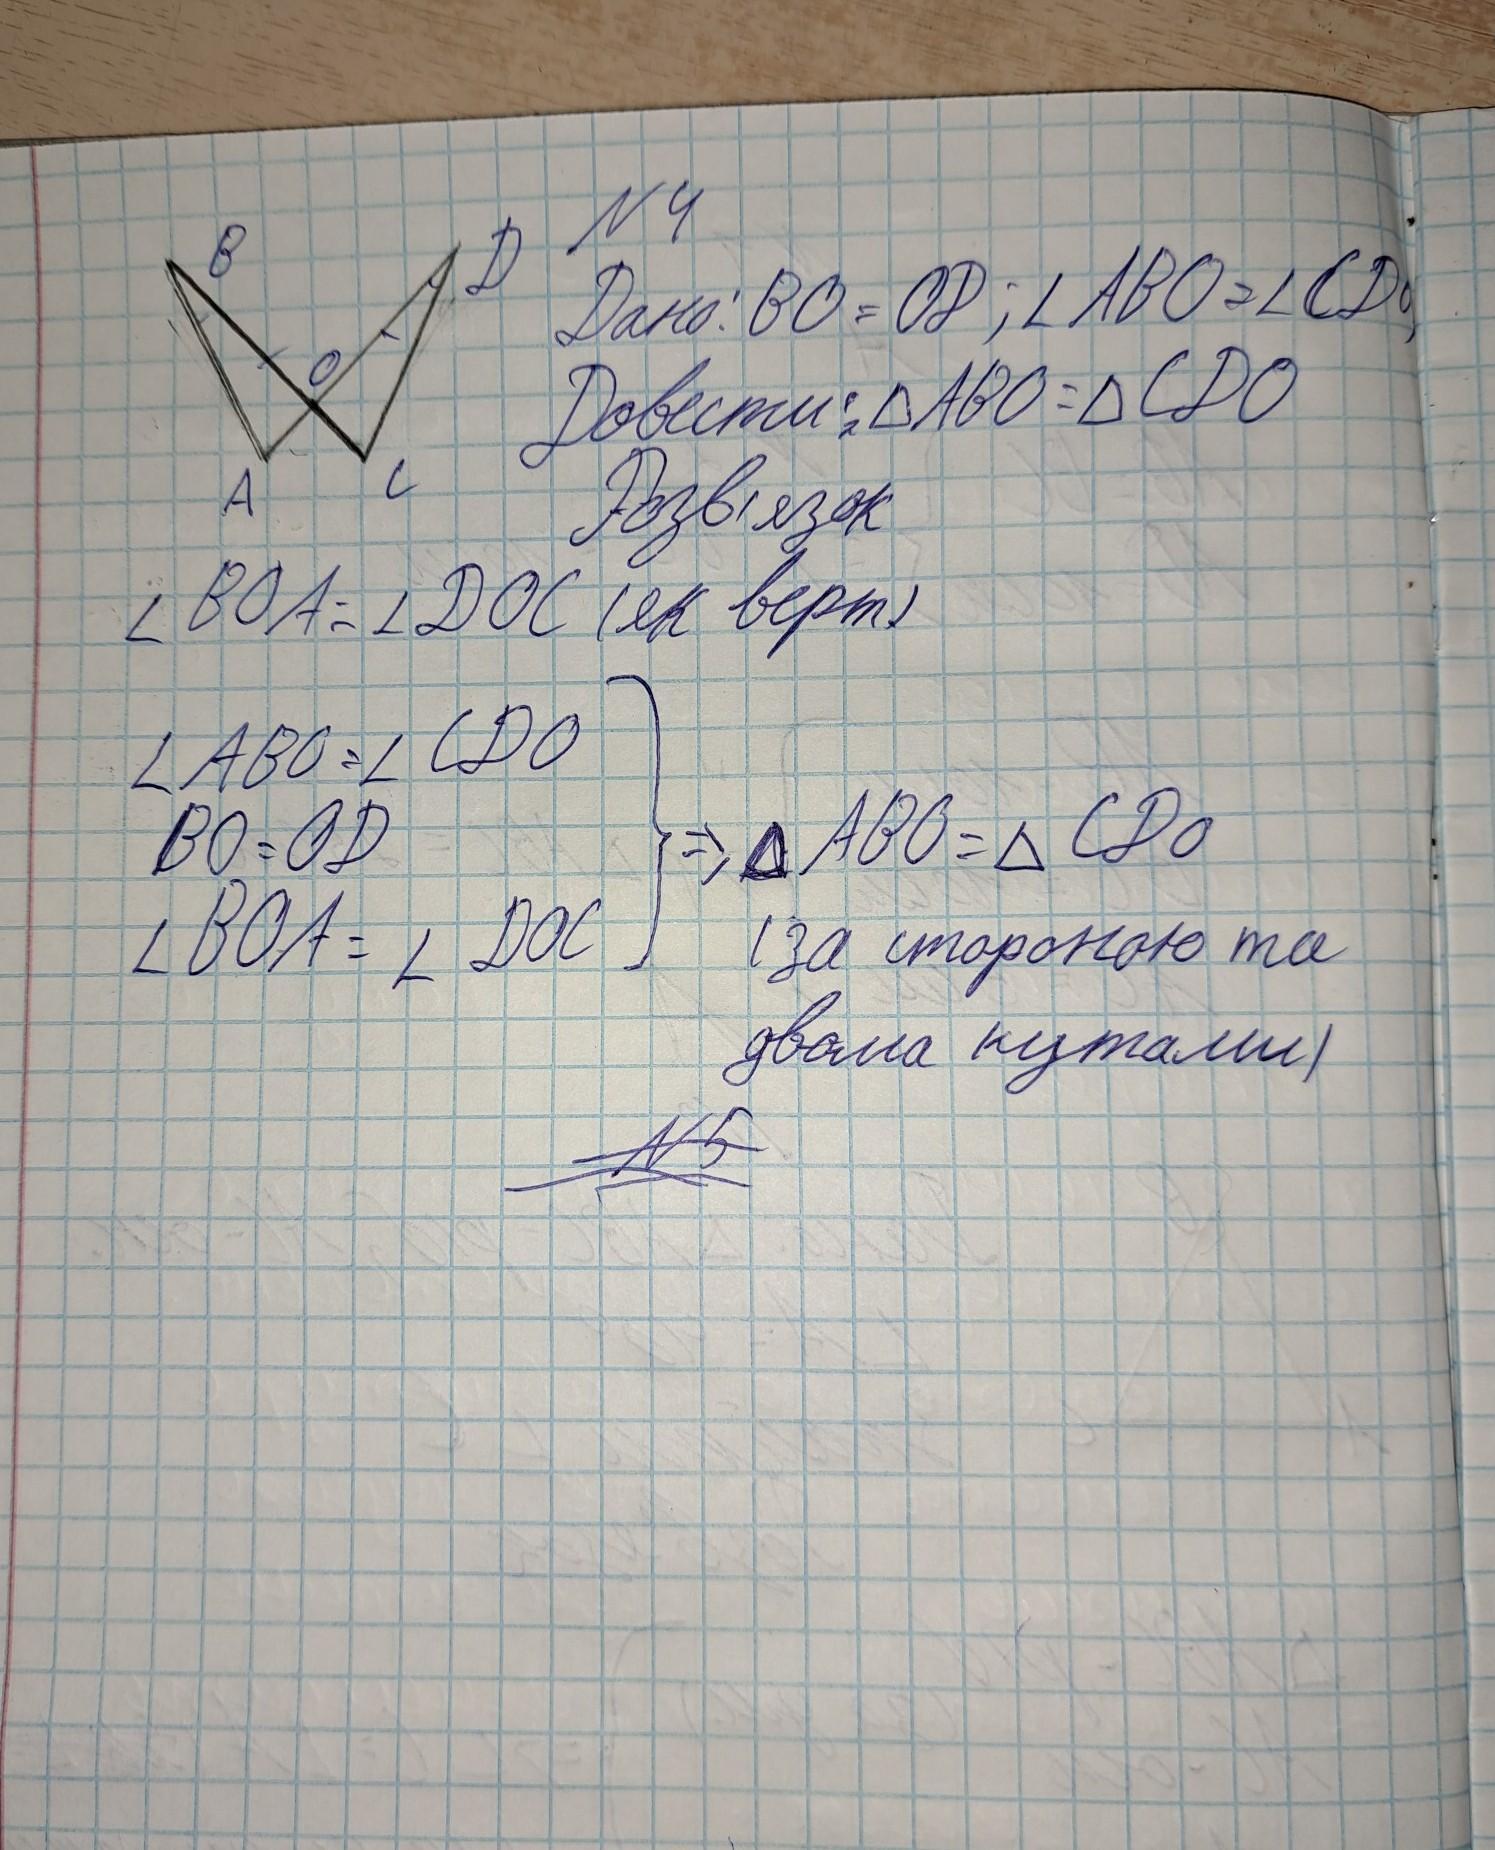 N4
B
D
O
A
C
Дано: BO = OD; ∠ABO = ∠CDO;
Довести: △ABO = △CDO
Розв'язок
∠BOA = ∠DOC (як верт)
∠ABO = ∠CDO
BO = OD
∠BOA = ∠DOC
⇒ △ABO = △CDO
(за стороною та
двома кутами)
N5